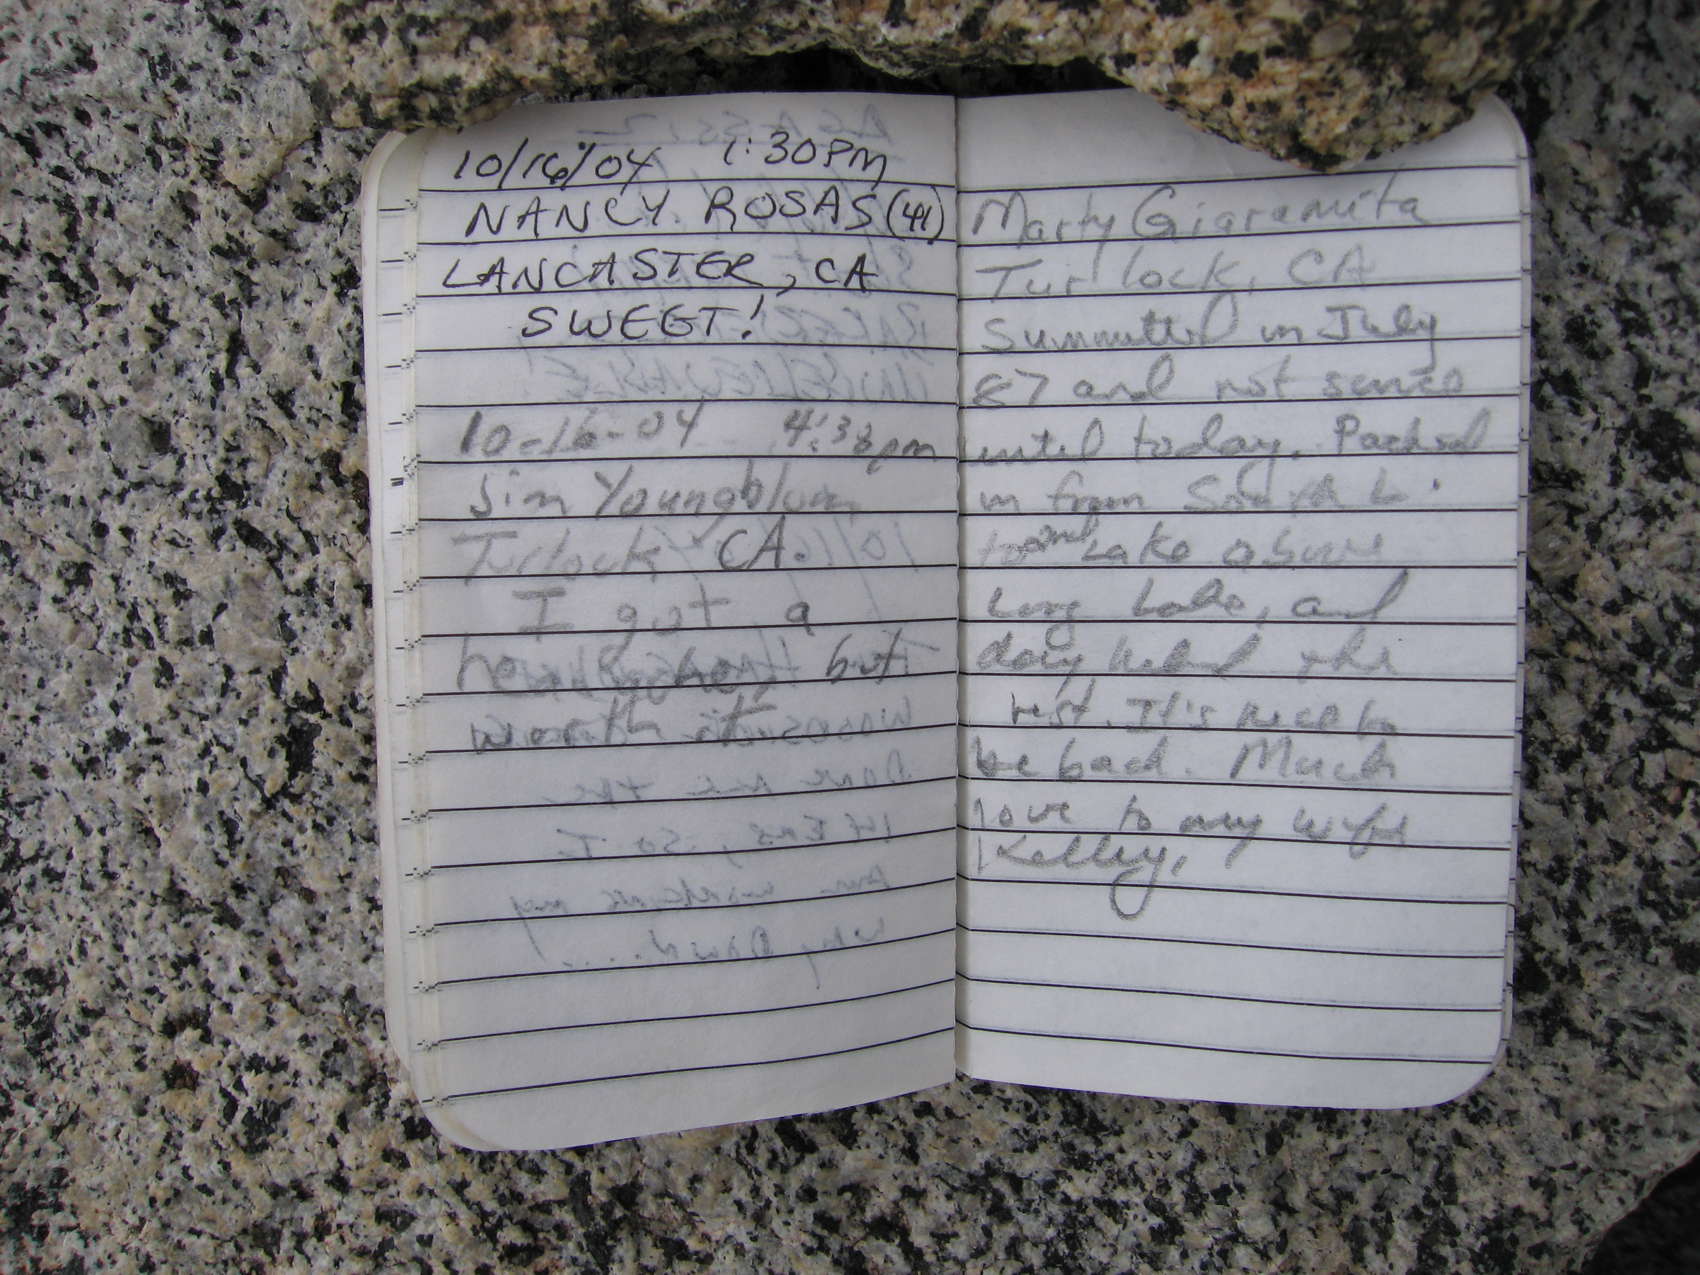 10/16/04 1:30PM
NANCY ROSAS (41)
LANCASTER, CA
SWEET!
10-16-04 4:38pm
Jim Youngblum
Turlock CA.
I got a
but
worth it
Marty Giaramita
Turlock, CA
Summitted in July
87 and not since
until today. Packed
in from South L.
to 2nd Lake above
Long Lake, and
day hiked the
rest. It's nice to
be back. Much
love to my wife
Kelley,